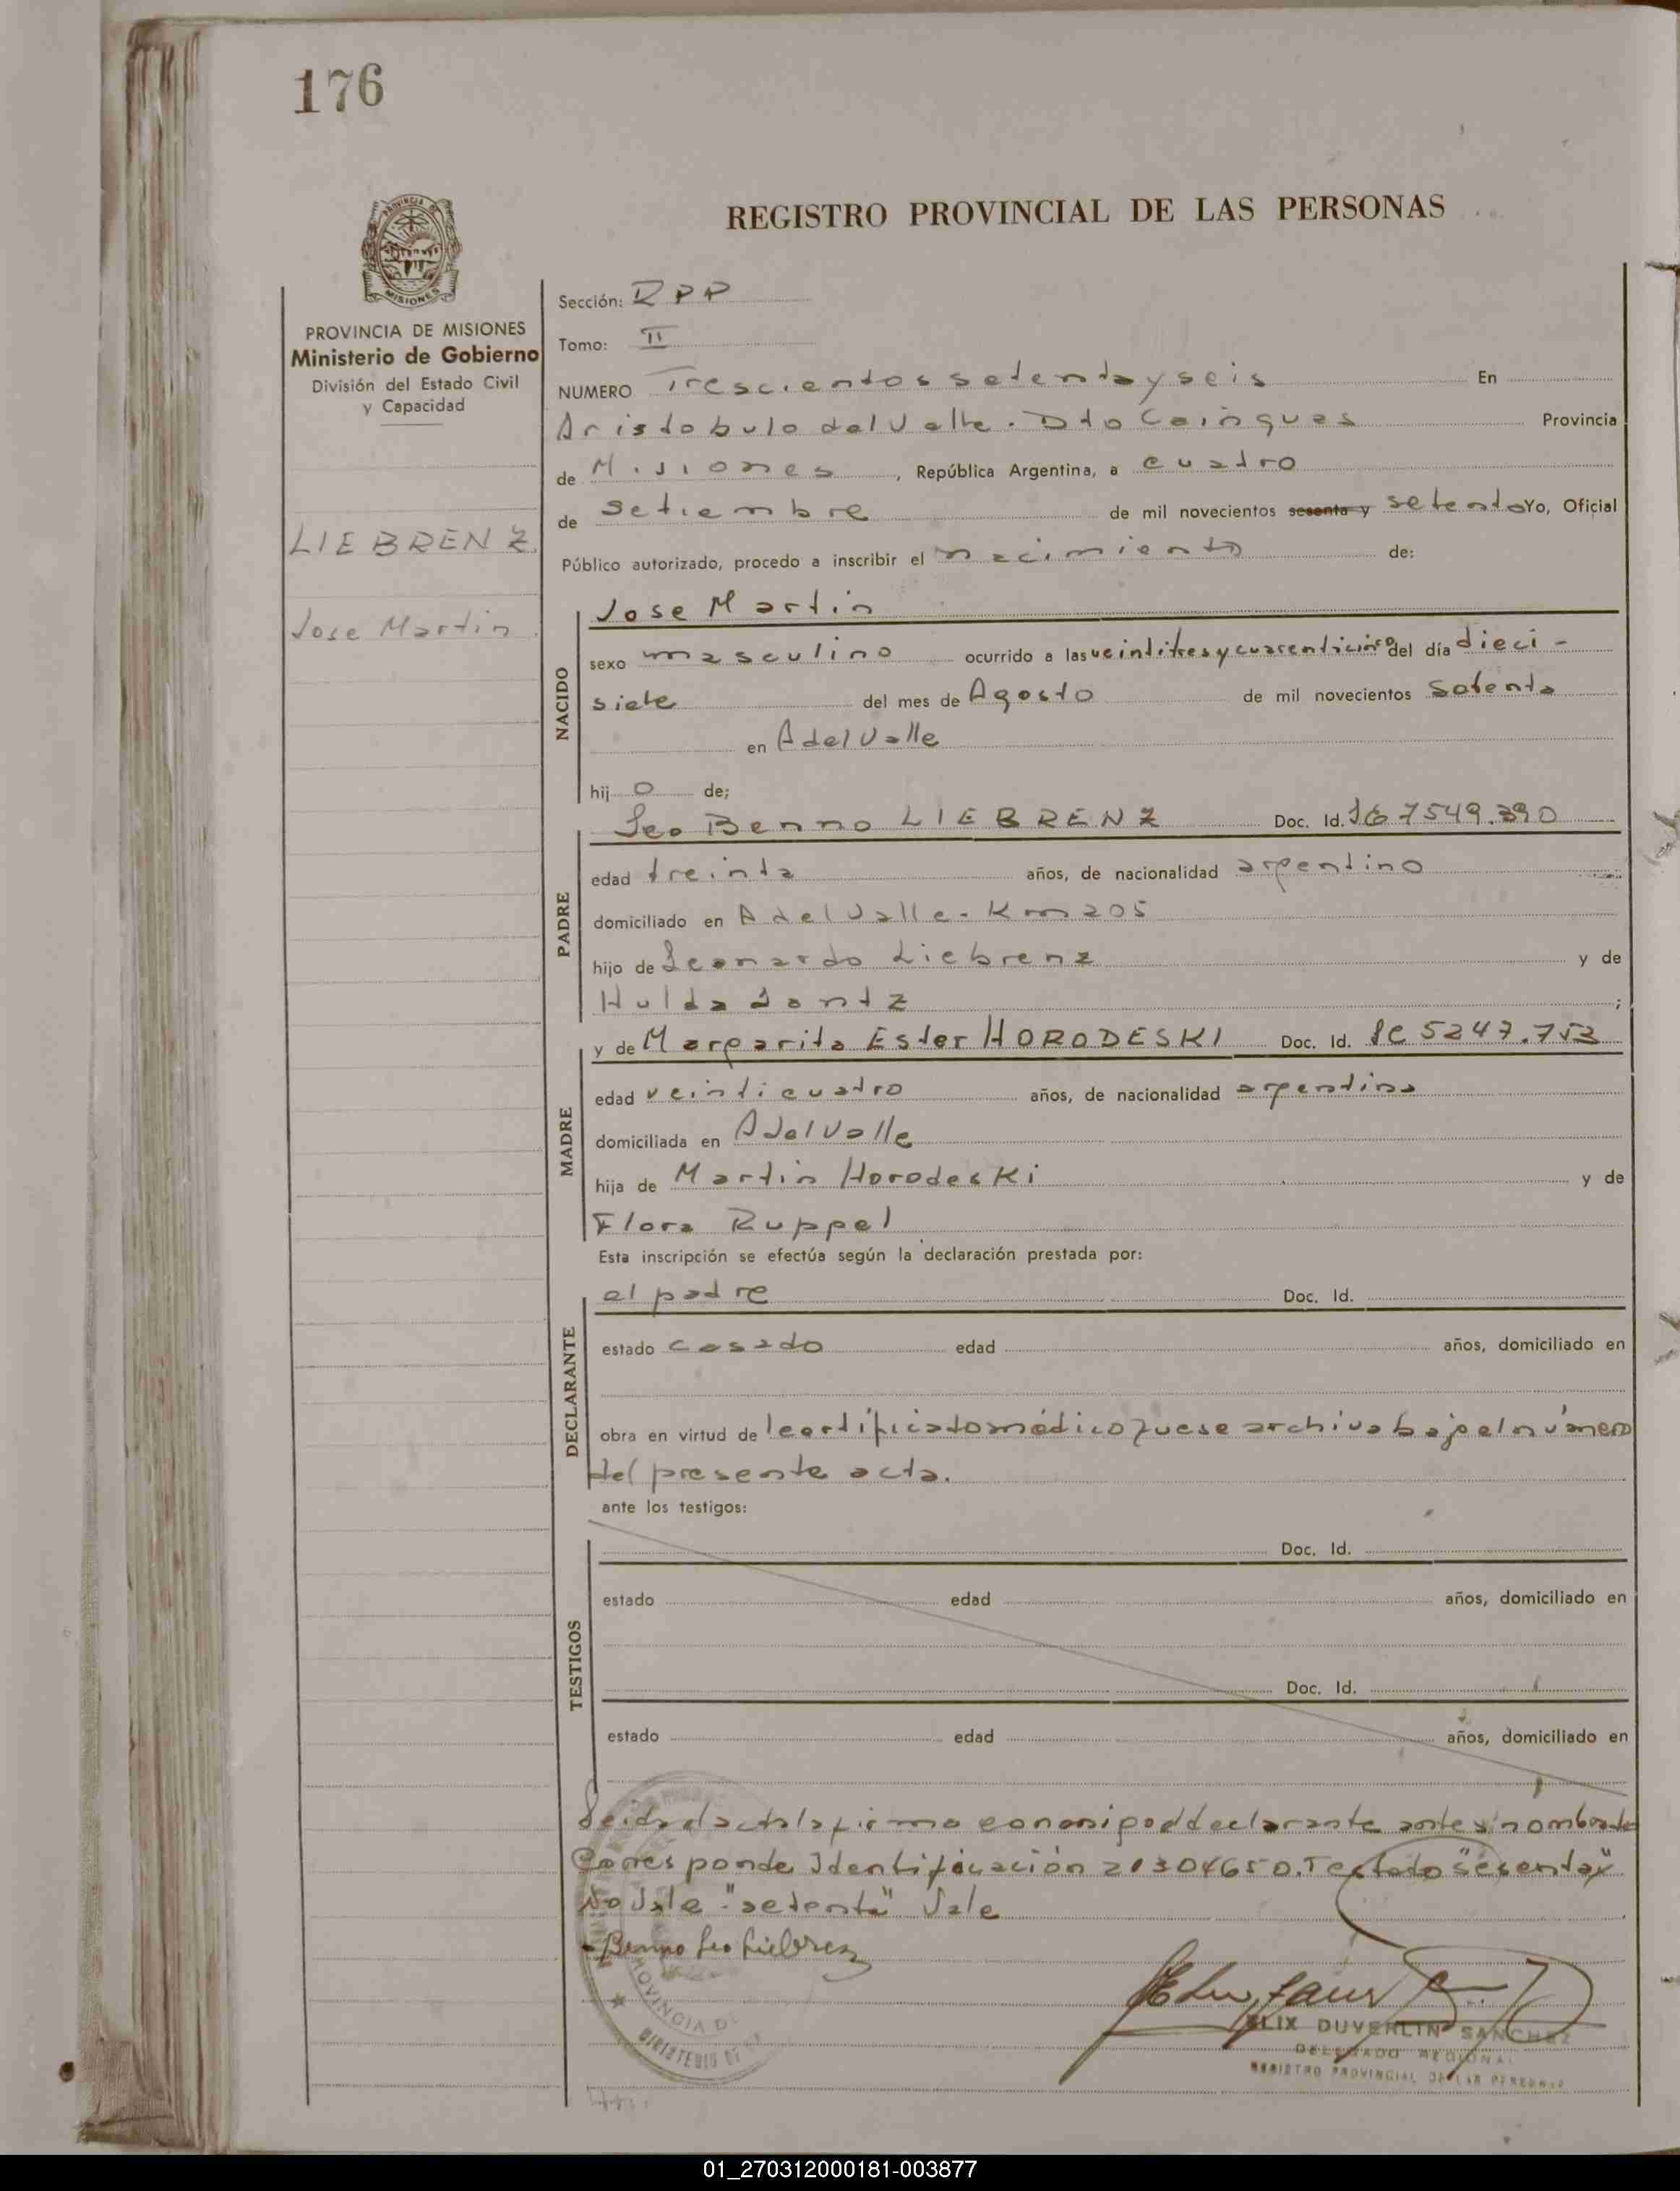 176
REGISTRO PROVINCIAL DE LAS PERSONAS
PROVINCIA DE
MISIONES
PROVINCIA DE MISIONES
Ministerio de Gobierno
División del Estado Civil
y Capacidad
LIEBRENZ
Jose Martin
Sección: RPP
Tomo: II
NUMERO Trescientos setenta y seis En
Aristobulo del Valle. Dto Cainguas Provincia
de Misiones, República Argentina, a cuatro
de Setiembre de mil novecientos sesenta y setenta Yo, Oficial
Público autorizado, procedo a inscribir el nacimiento de:
NACIDO
Jose Martin
sexo masculino ocurrido a las veintitres y cuarenticinco del día dieci-
siete del mes de Agosto de mil novecientos Setenta
en A del Valle
hij o de;
PADRE
Leo Benno LIEBRENZ Doc. Id. 7549.390
edad treinta años, de nacionalidad argentino
domiciliado en A del Valle - Km 205
hijo de Leonardo Liebrenz y de
Hulda ;
MADRE
y de Margarita Ester HORODESKI Doc. Id. LC 5247.753
edad veinticuatro años, de nacionalidad argentina
domiciliada en A del Valle
hija de Martin Horodeski y de
Flora Ruppel
Esta inscripción se efectúa según la declaración prestada por:
DECLARANTE
el padre Doc. Id.
estado casado edad años, domiciliado en
obra en virtud de l certificado médico que se archiva bajo el número
del presente acta.
ante los testigos:
TESTIGOS
Doc. Id.
estado edad años, domiciliado en
Doc. Id.
estado edad años, domiciliado en
Leida el acta la firma conmigo el declarante antes nombrado
Corresponde Identificación 21304650. Testado "sesenta y"
No Vale - "setenta" Vale
Benno Leo Liebrenz
PROVINCIA DE
MINISTERIO DE
FELIX DUVERLIN SANCHEZ
DELEGADO REGIONAL
REGISTRO PROVINCIAL DE LAS PERSONAS
01_270312000181-003877